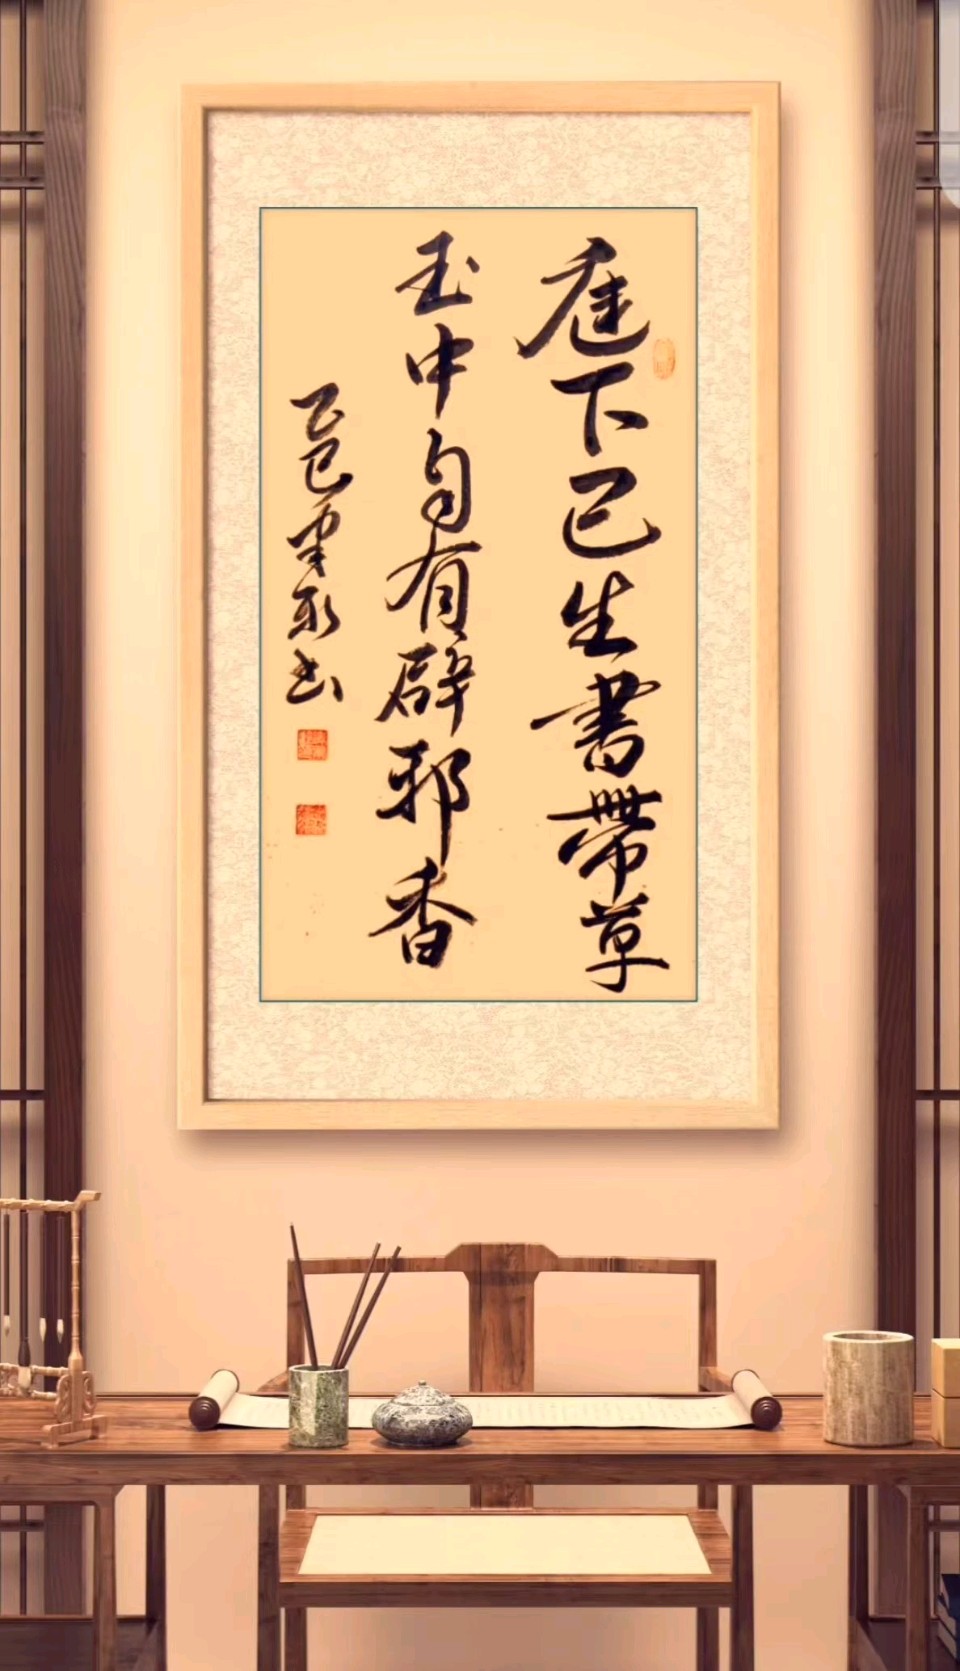 庭下已生書帶草
玉中自有辟邪香
乙巳
書